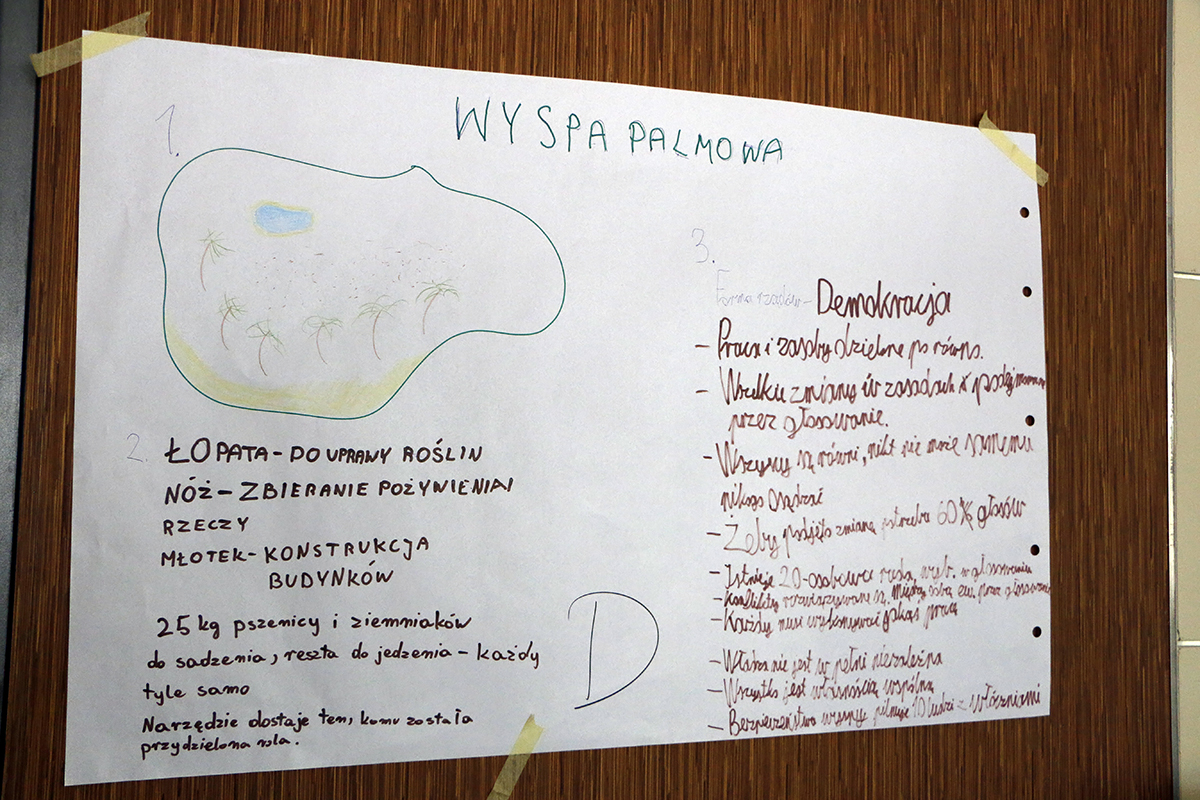 WYSPA PALMOWA
1.
2. ŁOPATA - DO UPRAWY ROŚLIN
NÓŻ - ZBIERANIE POŻYWIENIA I
RZECZY
MŁOTEK - KONSTRUKCJA
BUDYNKÓW
25 kg pszenicy i ziemniaków
do sadzenia, reszta do jedzenia - każdy
tyle samo
Narzędzie dostaje ten, komu została
przydzielona rola.
D
3.
Forma rządów - Demokracja
- Praca i zasoby dzielone po równo.
- Wszelkie zmiany w zasadach podejmowane
przez głosowanie.
- Wszyscy są równi, nikt nie może samemu
nikogo osądzać
- Żeby podjęto zmianę potrzeba 60% głosów
- Istnieje 20-osobowa rada, wyb. w głosowaniu
- Konflikty rozwiązywane są między sobą ew. przez głosowanie
- Każdy musi wykonywać jakąś pracę
- Władza nie jest w pełni niezależna
- Wszystko jest własnością wspólną
- Bezpieczeństwa wyspy pilnuje 10 ludzi z włóczniami